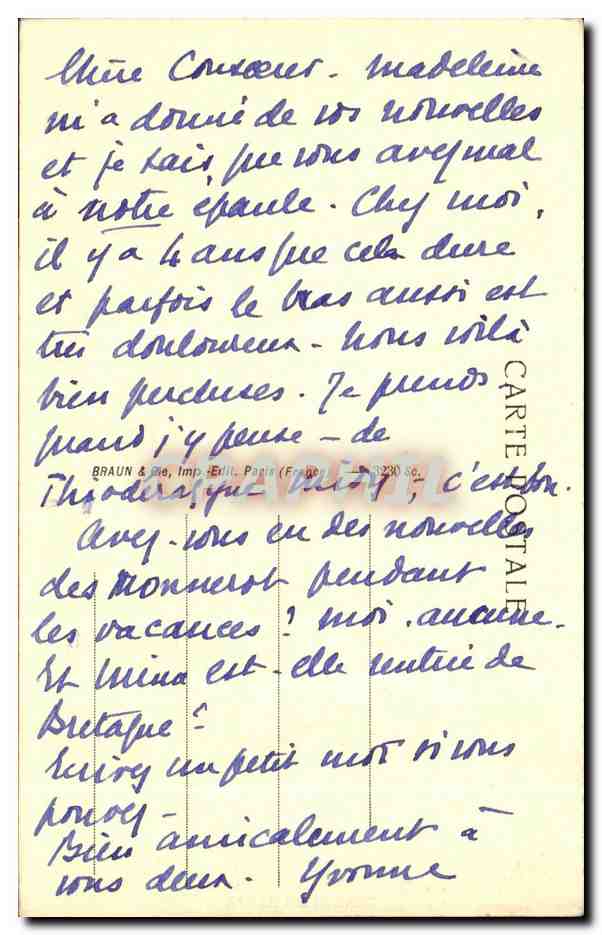 Chère Consoeur - Madeleine
m'a donné de vos nouvelles
et je sais que vous avez mal
à notre épaule. Chez moi,
il y a 4 ans que cela dure
et parfois le bras aussi est
très douloureux - Nous voilà
bien percluses. Je prends,
quand j'y pense - de
BRAUN & Cie, Imp.-Edit. Paris (France) 3230 Sc.
c'est bon.
Avez-vous eu des nouvelles
des Monnerot pendant
les vacances? Moi aucune.
Et Mina est-elle rentrée de
Bretagne?
Ecrivez un petit mot si vous
pouvez -
Bien amicalement à
vous deux. Yvonne
CARTE POSTALE